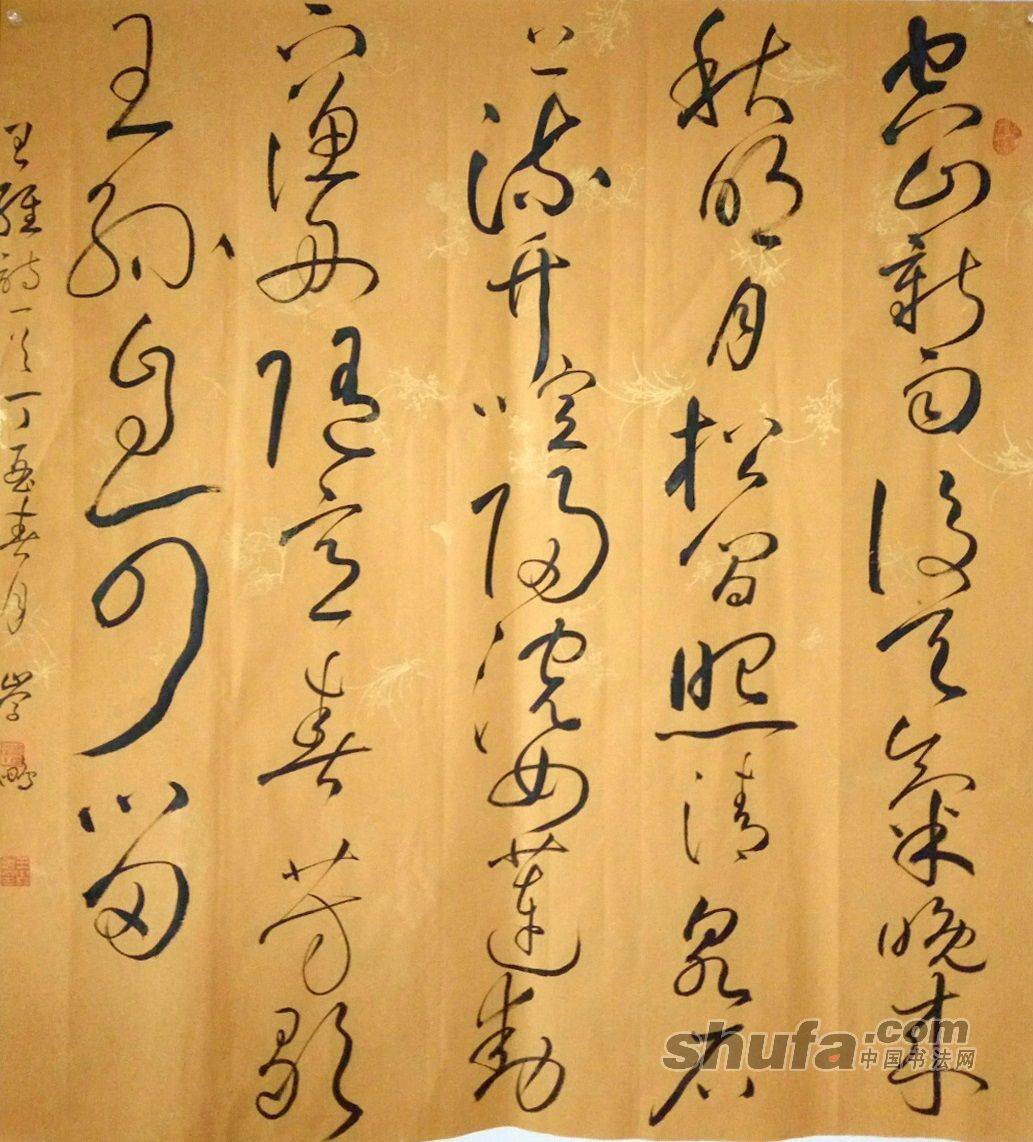 空山新雨後天氣晚来
秋明月松間照清泉石
上流竹喧歸浣女蓮動
下漁舟随意春芳歇
王孫自可留
王維詩一首丁酉春月
shufa.com
中国书法网